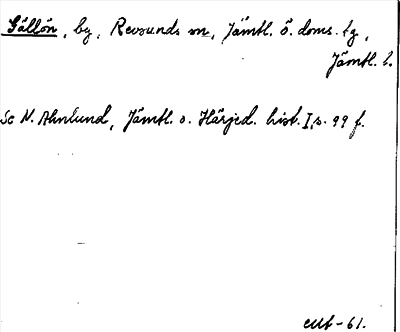 Gällön, by, Revsunds sn, Jämtl. ö. doms. tg,
Jämtl. l.
Se N. Ahnlund, Jämtl. o. Härjed. hist. I, s. 99 f.
-61.